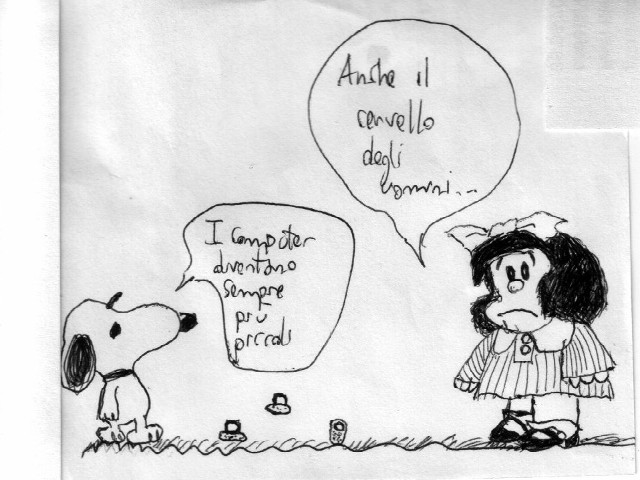 I computer
diventano
sempre
più
piccoli
Anche il
cervello
degli
uomini...